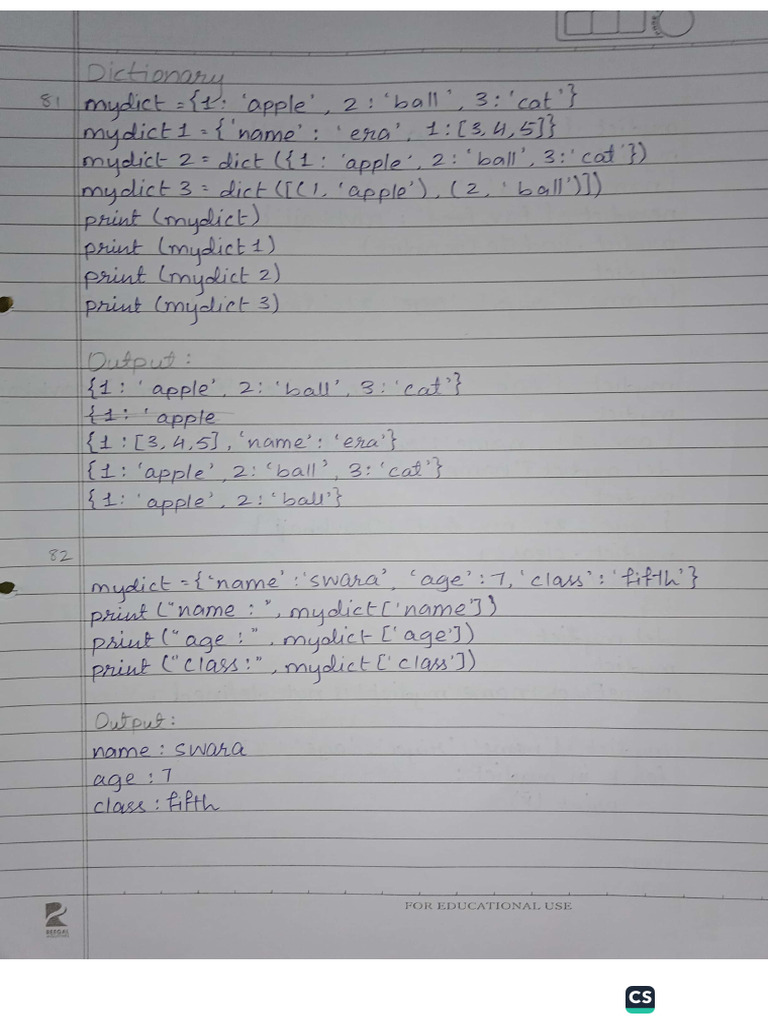 Dictionary
81 mydict = {1: 'apple', 2: 'ball', 3: 'cat'}
mydict 1 = {'name': 'era', 1:[3,4,5]}
mydict 2 = dict ({1: 'apple', 2: 'ball', 3: 'cat'})
mydict 3 = dict ([(1, 'apple'), (2, 'ball')])
print (mydict)
print (mydict 1)
print (mydict 2)
print (mydict 3)
Output:
{1: 'apple', 2: 'ball', 3: 'cat'}
{1: 'apple
{1:[3,4,5], 'name': 'era'}
{1: 'apple', 2: 'ball', 3: 'cat'}
{1: 'apple', 2: 'ball'}
82
mydict = {'name': 'swara', 'age': 7, 'class': 'fifth'}
print ("name : ", mydict['name'])
print (" age : ", mydict ['age'])
print ("class:", mydict ['class'])
Output:
name : swara
age : 7
class : fifth
FOR EDUCATIONAL USE
CS